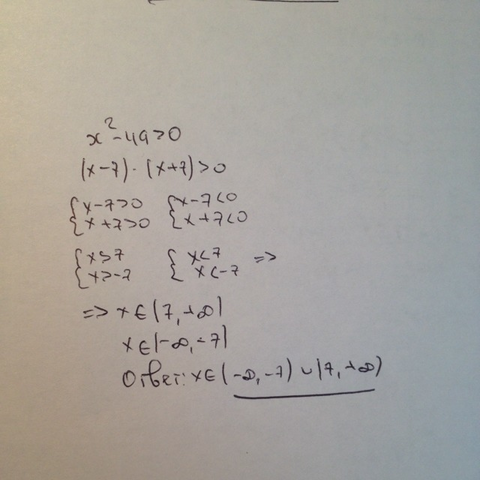 x²-49>0
(x-7)·(x+7)>0
{x-7>0 {x-7<0
{x+7>0 {x+7<0
{x>7 {x<7 =>
{x>-7 {x<-7
=> x∈(7,+∞)
x∈(-∞,-7)
Ответ: x∈(-∞,-7)∪(7,+∞)